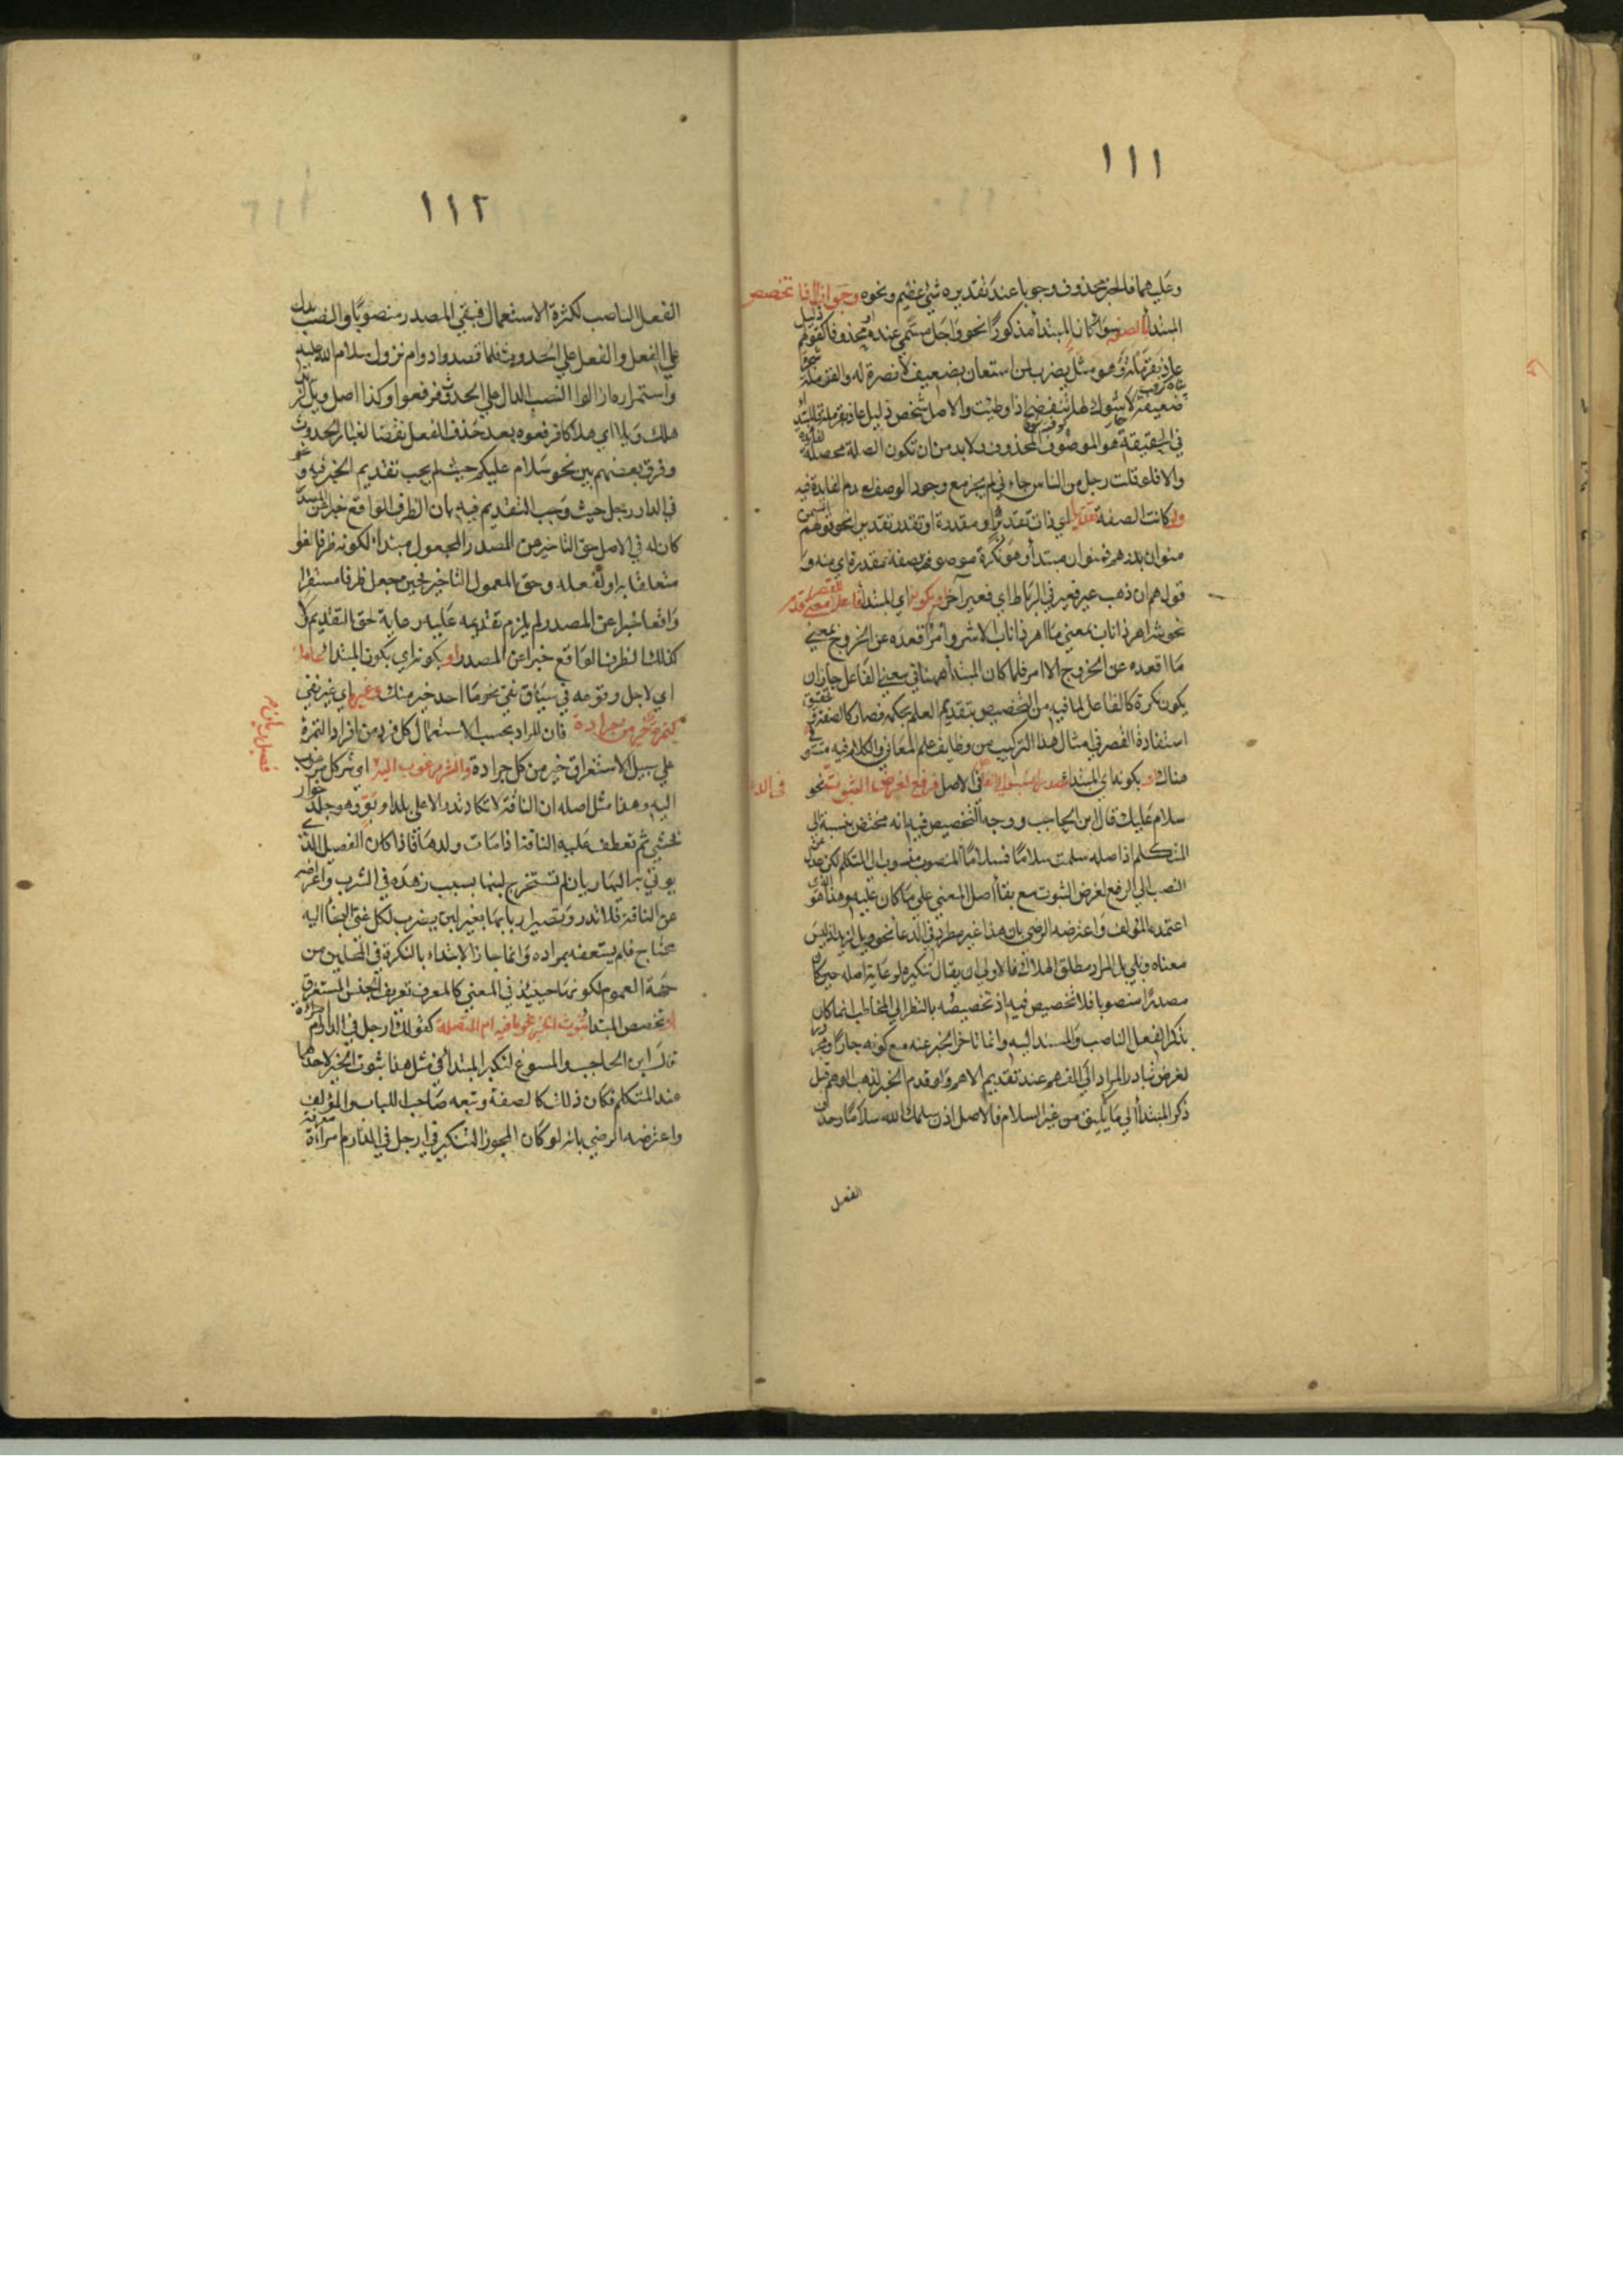 ١١١
وعليهما فالخبر محذوف وجوبا عند تقديره شئ عظيم ونحوه وجواز اذا تخصص
المبتدأ بالصفة سواء كان المبتدأ مذكورًا نحو واجل مسمى عنده او محذوفا كقولهم ذليل
عاذ بقرملة وهو مثل يضرب لمن استعان بضعيف لا نصرة له والقرملة شجرة
ضعيفة لا شوك لها تنفضح اذا وطئت والاصل شخص ذليل عاذ بقرملة فالمبتدأ
في الحقيقة هو الموصوف المحذوف ولا بد من ان تكون الصلة محصلة لفائدة
والا فلو قلت رجل من الناس جاءني لم يجز مع وجود الوصف لعدم الفايدة فيه
ولو كانت الصفة تقديرا اي ذات تقدير او مقدرة او تقدر تقديرا نحو قولهم السمن
منوان بدرهم فمنوان مبتدأ وهو نكرة موصوفة بصفة مقدرة اي منه و
قولهم ان ذهب عير فعير في الرباط اي فعير آخر او بكونه اي المبتدأ فاعلا معنى
نحو شر اهر ذا ناب بمعنى ما اهر ذا ناب الا شر وامر اقعده عن الخروج بمعنى
ما اقعده عن الخروج الا امر فلما كان المبتدأ ههنا في معنى الفاعل جاز ان
يكون نكرة كالفاعل لما فيه من التخصيص بتقديم العلم بحكمه فصار كالصفة وتحقيق
استفادة القصر في امثال هذا التركيب من وظايف علم المعاني والكلام فيه مستوفى
هناك او بكونه اي المبتدأ في الاصل فرفع لغرض الثبوت نحو في الدعا
سلام عليك قال ابن الحاجب ووجه التخصيص فيه انه مختص بنسبة الى
المتكلم اذ اصله سلمت سلامًا فسلامًا المنصوب منسوب الى المتكلم لكن عدل عن
النصب الى الرفع لغرض الثبوت مع بقاء اصل المعنى على ما كان عليه وهذا هو الذي
اعتمده المؤلف واعترضه الرضى بان هذا غير مطرد في الدعا نحو ويل لزيد اذ ليس
معناه ويلى بل المراد مطلق الهلاك فالاولى ان يقال تنكيره لرعاية اصله حين كان
مصدرًا منصوبا فلا تخصيص فيه اذ تخصيصه بالنظر الى المخاطب انما كان
بذكر الفعل الناصب والمسند اليه وانما تاخر الخبر عنه مع كونه جارا ومجرورا
لغرض تبادر المراد الى الفهم عند تقديم الاهم ولو قدم الخبر لذهب الوهم قبل
ذكر المبتدأ الى ما يليق من غير السلام فالاصل اذن سلمك الله سلاما وحذف
الفعل
١١٢
الفعل الناصب لكثرة الاستعمال فبقي المصدر منصوبًا والنصب يدل
على الفعل والفعل على الحدوث فلما قصدوا دوام نزول سلام الله عليه
واستمراره ازالوا النصب الدال على الحدوث فرفعوا وكذا اصل ويل لزيد
هلك ويلا اي هلاكا فرفعوه بعد حذف الفعل نفضا لغبار الحدوث
وفرق بعضهم بين نحو سلام عليكم حيث لم يجب تقديم الخبر فيه ونحو
في الدار رجل حيث وجب التقديم فيه بان الظرف الواقع خبرا عن المسند
كان له في الاصل حق التاخير عن المصدر المجعول مبتدأ لكونه ظرفا لغوا
متعلقا به او لفعله وحق المعمول التاخير فحين جعل ظرفا مستقرا
واقعا خبرا عن المصدر لم يلزم تقديمه عليه رعاية لحق التقديم ولا
كذلك الظرف الواقع خبرا عن المصدر او بكونه اي بكون المبتدأ عاما
اي لاجل وقوعه في سياق نفي نحو ما احد خير منك وغيره اي غير نفي
كتمرة خير من جرادة فان المراد بحسب الاستعمال كل فرد من افراد التمرة
على سبيل الاستغراق خير من كل جرادة والشر مرغوب اليه اي شر كل مرغوب
اليه وهذا مثل اصله ان الناقة لا تكاد تدر الا على ولد او بو وهو جلد حوار
يحشى ثم تعطف عليه الناقة اذا مات ولدها فاذا كان الفصيل الذي
يوتى به اليها ريان لم تستخرج لبنها بسبب زهده في الشرب واعراضه
عن الناقة فلا تدر وتصير اربابها بغير لبن يضرب لكل غنى التجأ اليه
محتاج فلم يسعفه بمراده وانما جاز الابتداء بالنكرة في المحلين من
جهة العموم لكونها حينئذ في المعنى كالمعرف تعريف الجنس المستغرق
او تخصص المبتدأ بثبوت الخبر نحو ما فيه ام المتصلة كقولك ارجل في الدار ام امرأة
قال ابن الحاجب والمسوغ لتنكير المبتدأ في مثل هذا ثبوت الخبر لاحدهما
عند المتكلم فكان ذلك كالصفة وتبعه صاحب اللباب والمؤلف
واعترضه الرضي بانه لو كان المجوز للتنكير في ارجل في الدار ام امرأة